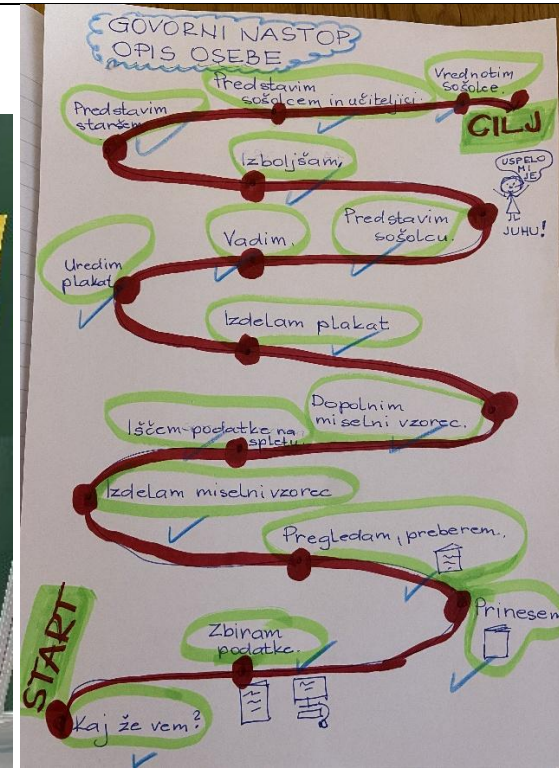 GOVORNI NASTOP
OPIS OSEBE
Vrednotim
sošolce.
CILJ
Predstavim
sošolcem in učiteljici.
Predstavim
staršem
Izboljšam,
USPELO
MI
JE
JUHU!
Predstavim
sošolcu.
Vadim.
Uredim
plakat
Izdelam plakat
Dopolnim
miselni vzorec.
Iščem podatke na
spletu
Izdelam miselni vzorec
Pregledam, preberem.
Prinesem
Zbiram
podatke.
START
Kaj že vem?